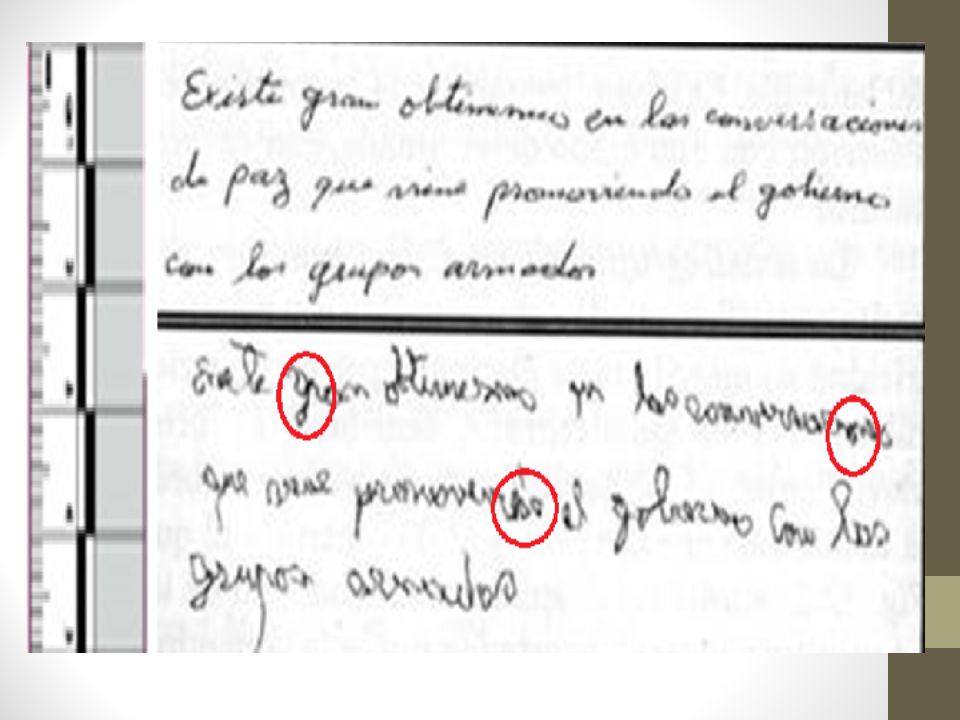 Existe gran obtimismo en las conversaciones
de paz que viene promoviendo el gobierno
con los grupos armados
Existe gran obtimismo en las conversaciones
que viene promoviendo el gobierno con los
grupos armados